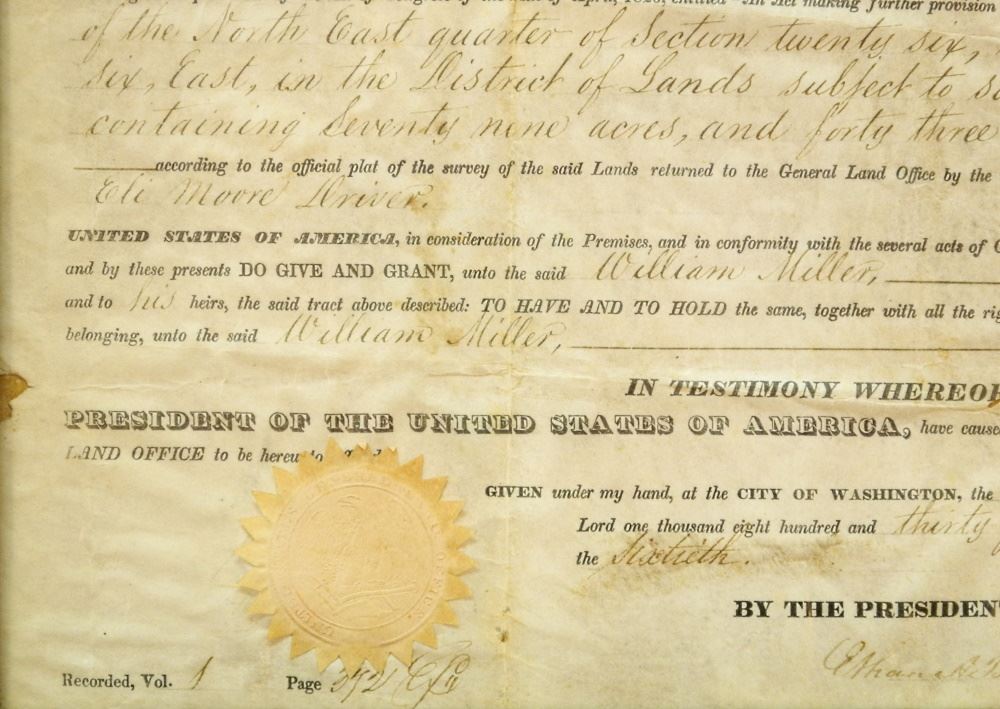 of April, 1820, entitled "An Act making further provision
of the North East quarter of Section twenty six,
six, East, in the District of Lands subject to
containing Seventy nine acres, and forty three
according to the official plat of the survey of the said Lands returned to the General Land Office by the
Eli Moore Driver.
UNITED STATES OF AMERICA, in consideration of the Premises, and in conformity with the several acts of
and by these presents DO GIVE AND GRANT, unto the said William Miller,
and to his heirs, the said tract above described: TO HAVE AND TO HOLD the same, together with all the
belonging, unto the said William Miller,
IN TESTIMONY WHEREOF
PRESIDENT OF THE UNITED STATES OF AMERICA, have cause
LAND OFFICE to be hereunto
GIVEN under my hand, at the CITY OF WASHINGTON, the
Lord one thousand eight hundred and thirty
the Sixtieth.
BY THE PRESIDEN
Recorded, Vol. 1 Page 372